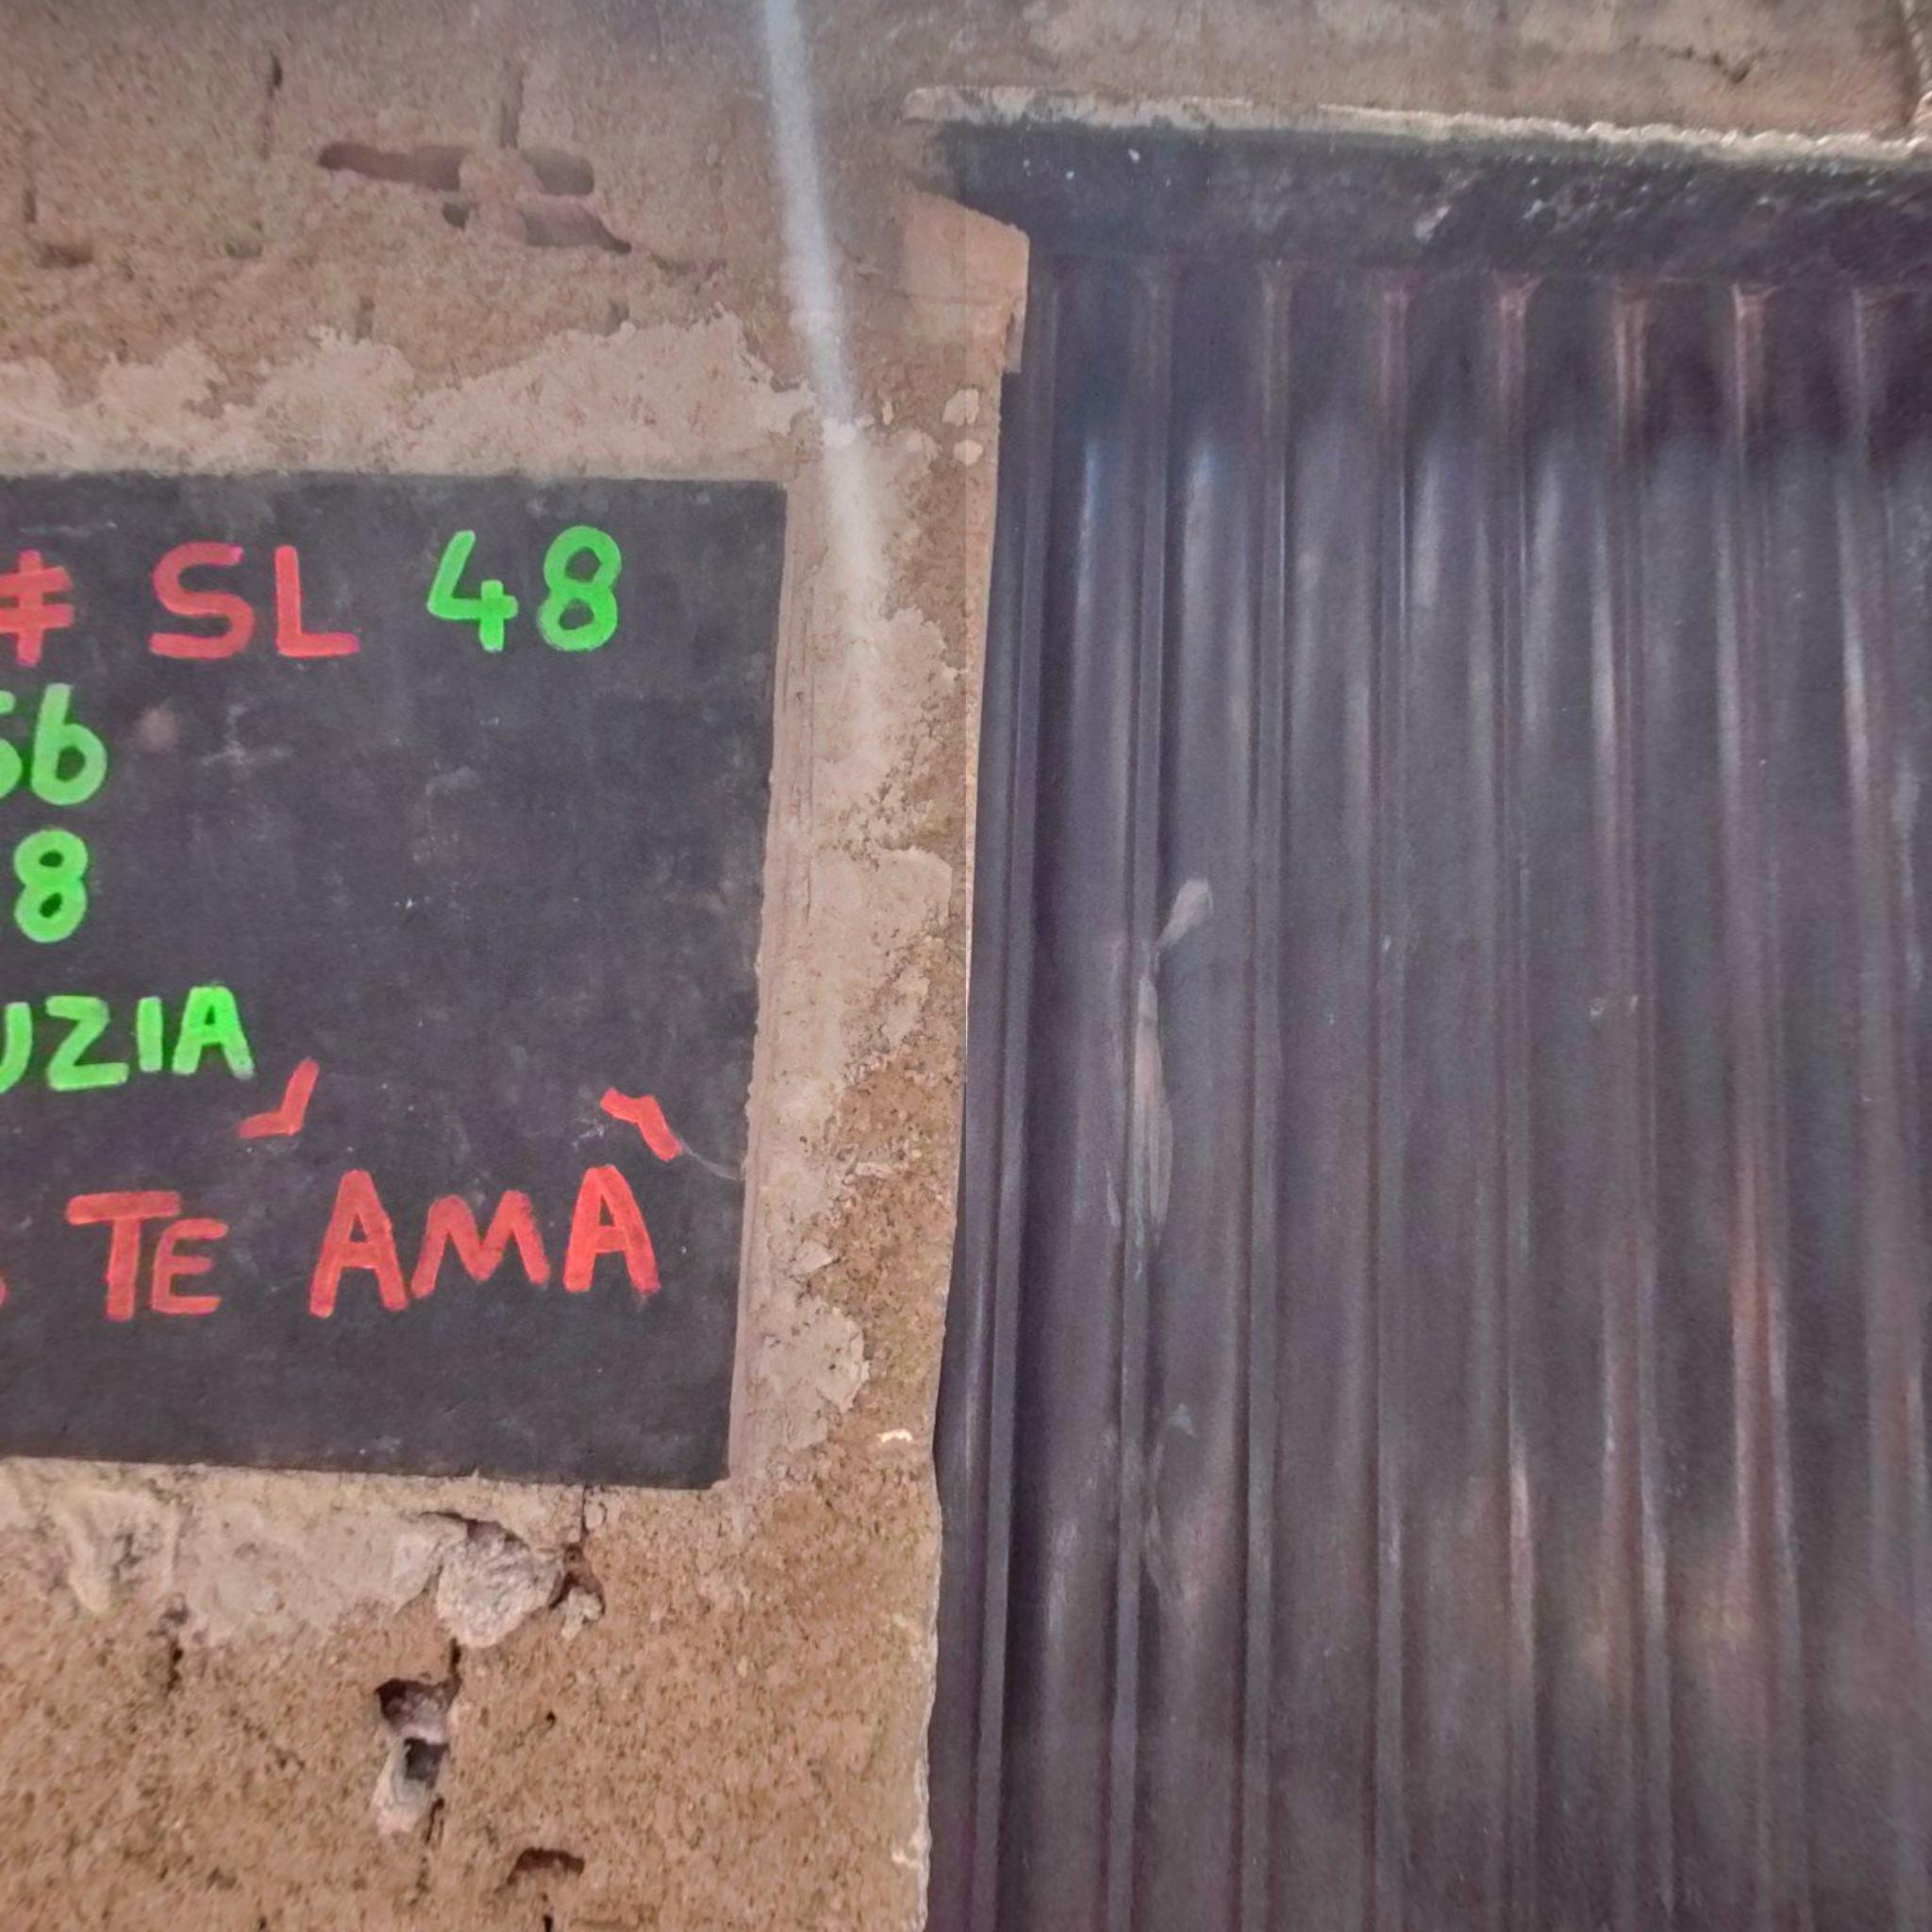 # SL 48
56
8
UZIA
TE ÁMÀ